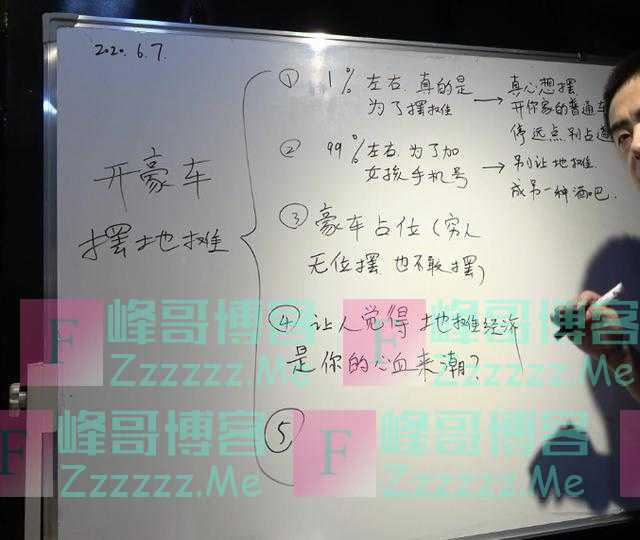 2020.6.7.
开豪车
摆地摊
① 1%左右.真的是
为了摆摊
→ 真心想摆
开你家的普通车
停远点.别占道
② 99%左右.为了加
女孩手机号
→ 别让地摊
成另一种酒吧.
③ 豪车占位(穷人
无位摆 也不敢摆)
④ 让人觉得 地摊经济
是你的心血来潮?
⑤
F 峰哥博客
Zzzzzz.Me
F 峰哥博客
Zzzzzz.Me
F 峰哥博客
Zzzzzz.Me
F 峰哥博客
Zzzzzz.Me